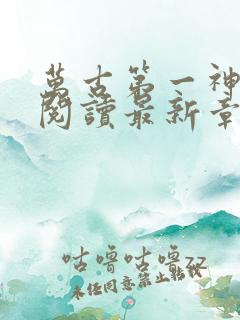 萬古第一神
閱讀最新章
咕嚕咕嚕zz
未經同意禁止轉載